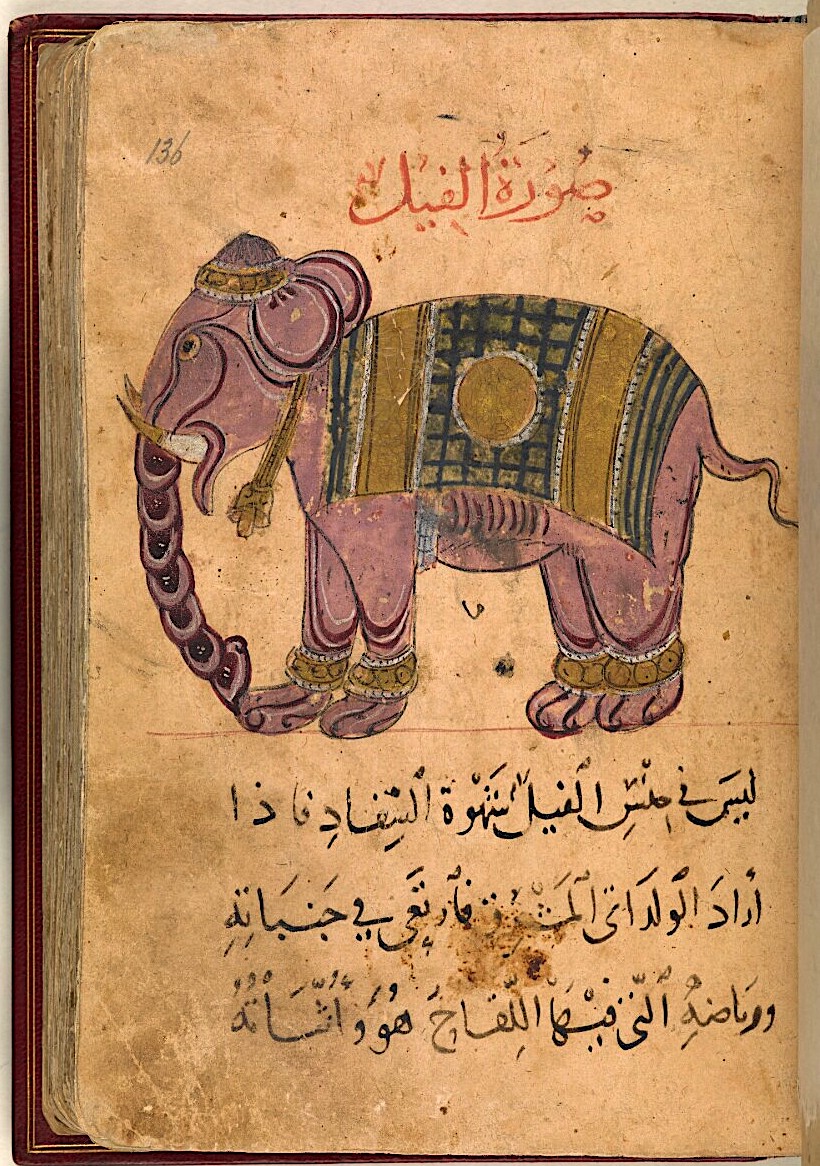 136
صُوْرَةُ الفِيْلِ
ليسَ في جِنْسِ الفيلِ شَهْوَة السِّفَادِ فاذا
أرادَ الولد اتى المَشْرِق فارتقى في جَنبَاتِهِ
ورياضهِ الّتي فيْهَا اللِّقاحَ هُوَ وَاُنْثَاهُ